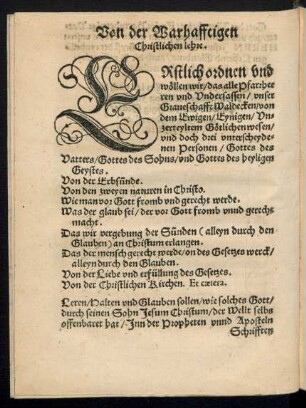 Von der Warhafftigen
Christlichen lehre.
ERstlich ordnen vnd
wöllen wir / das alle Pfarrher
ren vnd Vndersassen / vnser
Graueschafft Waldecken / von
dem Ewigen / Eynigen / Vn-
zerteyltem Götlichen wesen /
vnd doch drei vnterscheyde-
nen Personen / Gottes des
Vatters / Gottes des Sohns / vnd Gottes des heyligen
Geystes.
Von der Erbsünde.
Von den zweyen naturen in Christo.
Wie man vor Gott fromb vnd gerecht werde.
Was der glaub sei / der vor Gott fromb vnnd gerecht
macht.
Das wir vergebung der Sünden ( alleyn durch den
Glauben ) an Christum erlangen.
Das der mensch gerecht werde / on des Gesetzes werck /
alleyn durch den Glauben.
Von der Liebe vnd erfüllung des Gesetzes.
Von der Christlichen Kirchen. Et cætera.
Leren / Halten vnd Glauben sollen / wie solches Gott /
durch seinen Sohn Jesum Christum / der Wellt selbs
offenbaret hat / Jnn der Propheten vnnd Aposteln
Schrifften